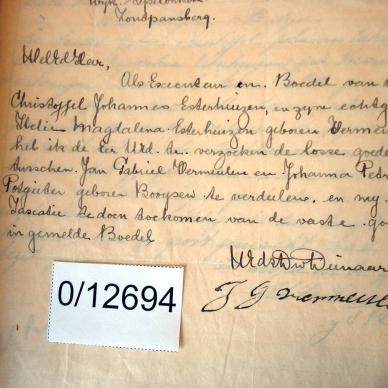 Zoutpansberg.
WelEd Heer,
Als Executeur en Boedel van
Christoffel Johannes Esterhuizen, en zyne echtg
Hester Magdalena Esterhuizen geboren Vermeu
heb ik de eer Uld. te verzoeken de losse goed
tusschen Jan Gabriel Vermeulen en Johanna Petr
Potgieter geboren Booysen te verdeelen en my
Taxatie te doen toekomen van de vaste go
in gemelde Boedel
UEdsDwDienaar
J G Vermeul
0/12694